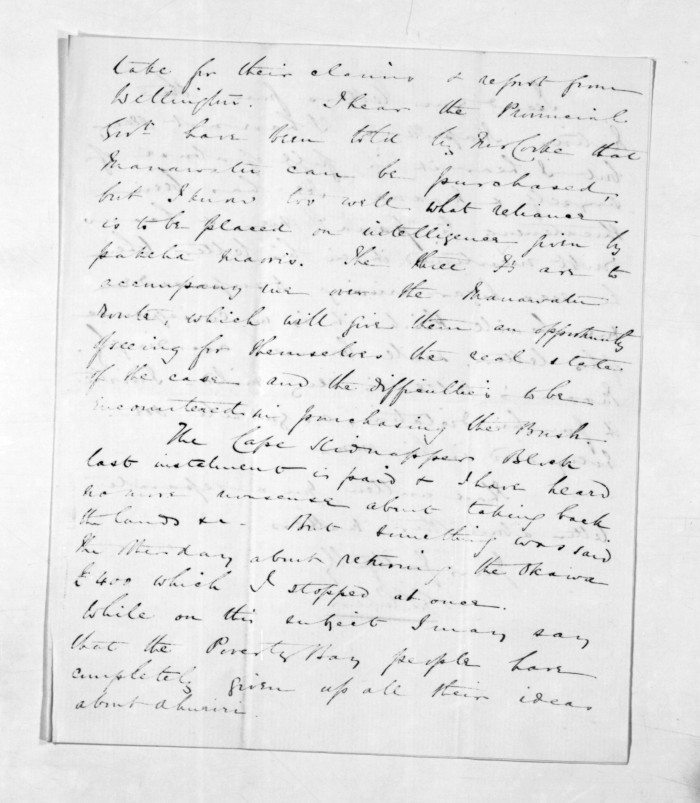 take for their claims & report from
Wellington. I hear the Provincial
Govt have been told by Mr that
Manawatu can be purchased,
but I know too well what reliance
is to be placed on intelligence given by
pakeha maoris. The three are to
accompany me over the Manawatu
route, which will give them an opportunity
of seeing for themselves the real state
of the case and the difficulties to be
encountered in purchasing the Bush.
The Cape Kidnapper Block
last instalment is paid & I have heard
no more nonsense about taking back
the lands &c. But something was said
the about returning the Okawa
£400 which I stopped at once.
While on this subject I may say
that the Poverty Bay people have
completely given up all their ideas
about Ahuriri.